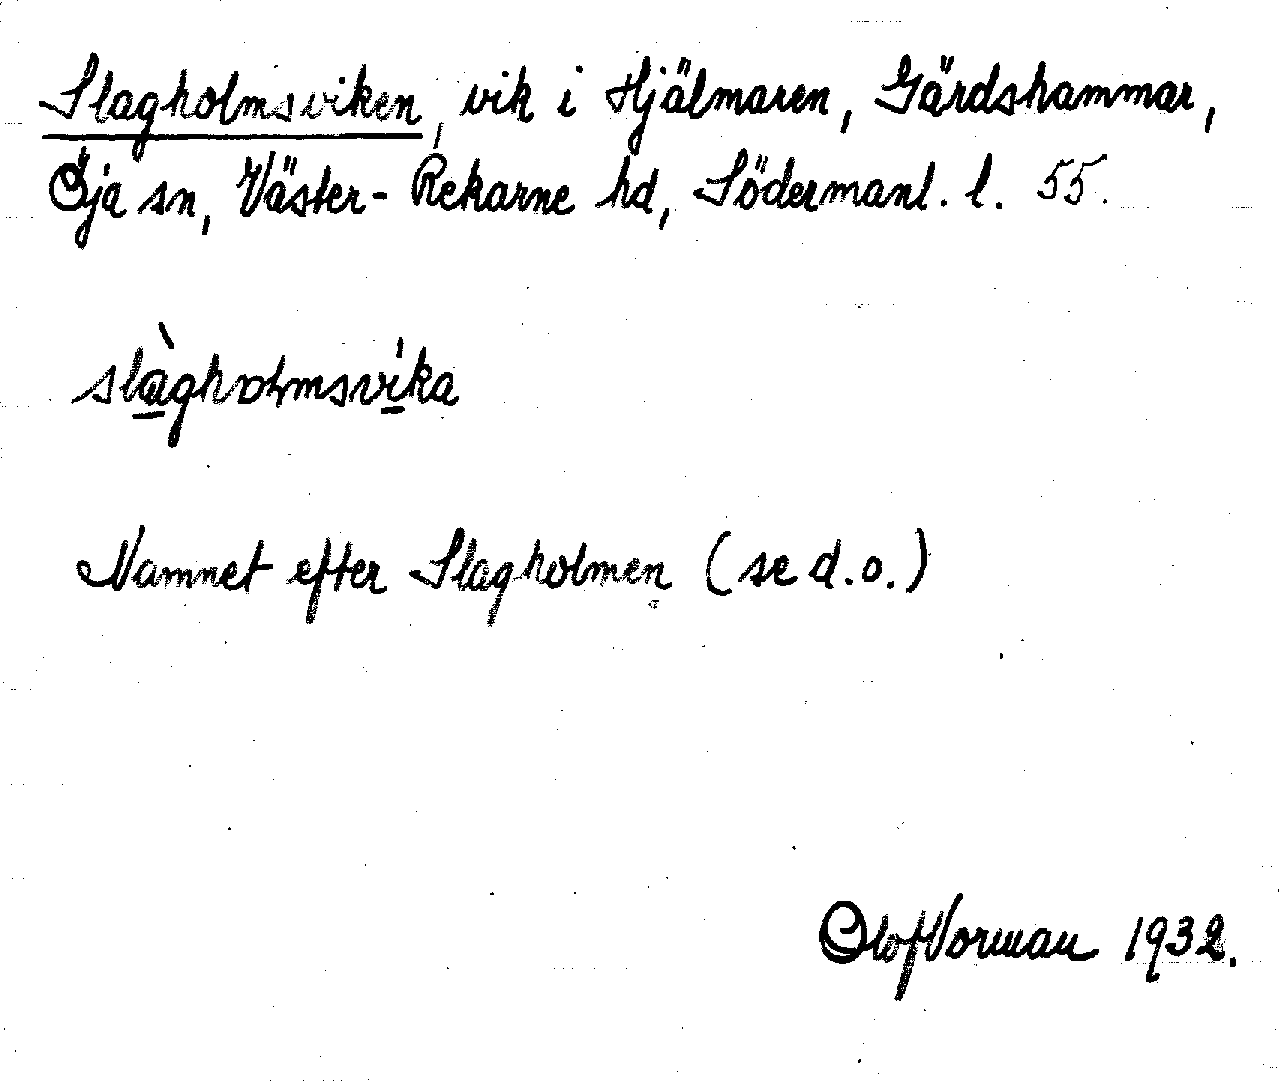 Slagholmsviken, vik i Hjälmaren, Gärdshammar,
Öja sn, Väster-Rekarne hd, Södermanl. l. 55.
slàgholmsvi̍ka
Namnet efter Slagholmen (se d.o.)
Olof Norman 1932.